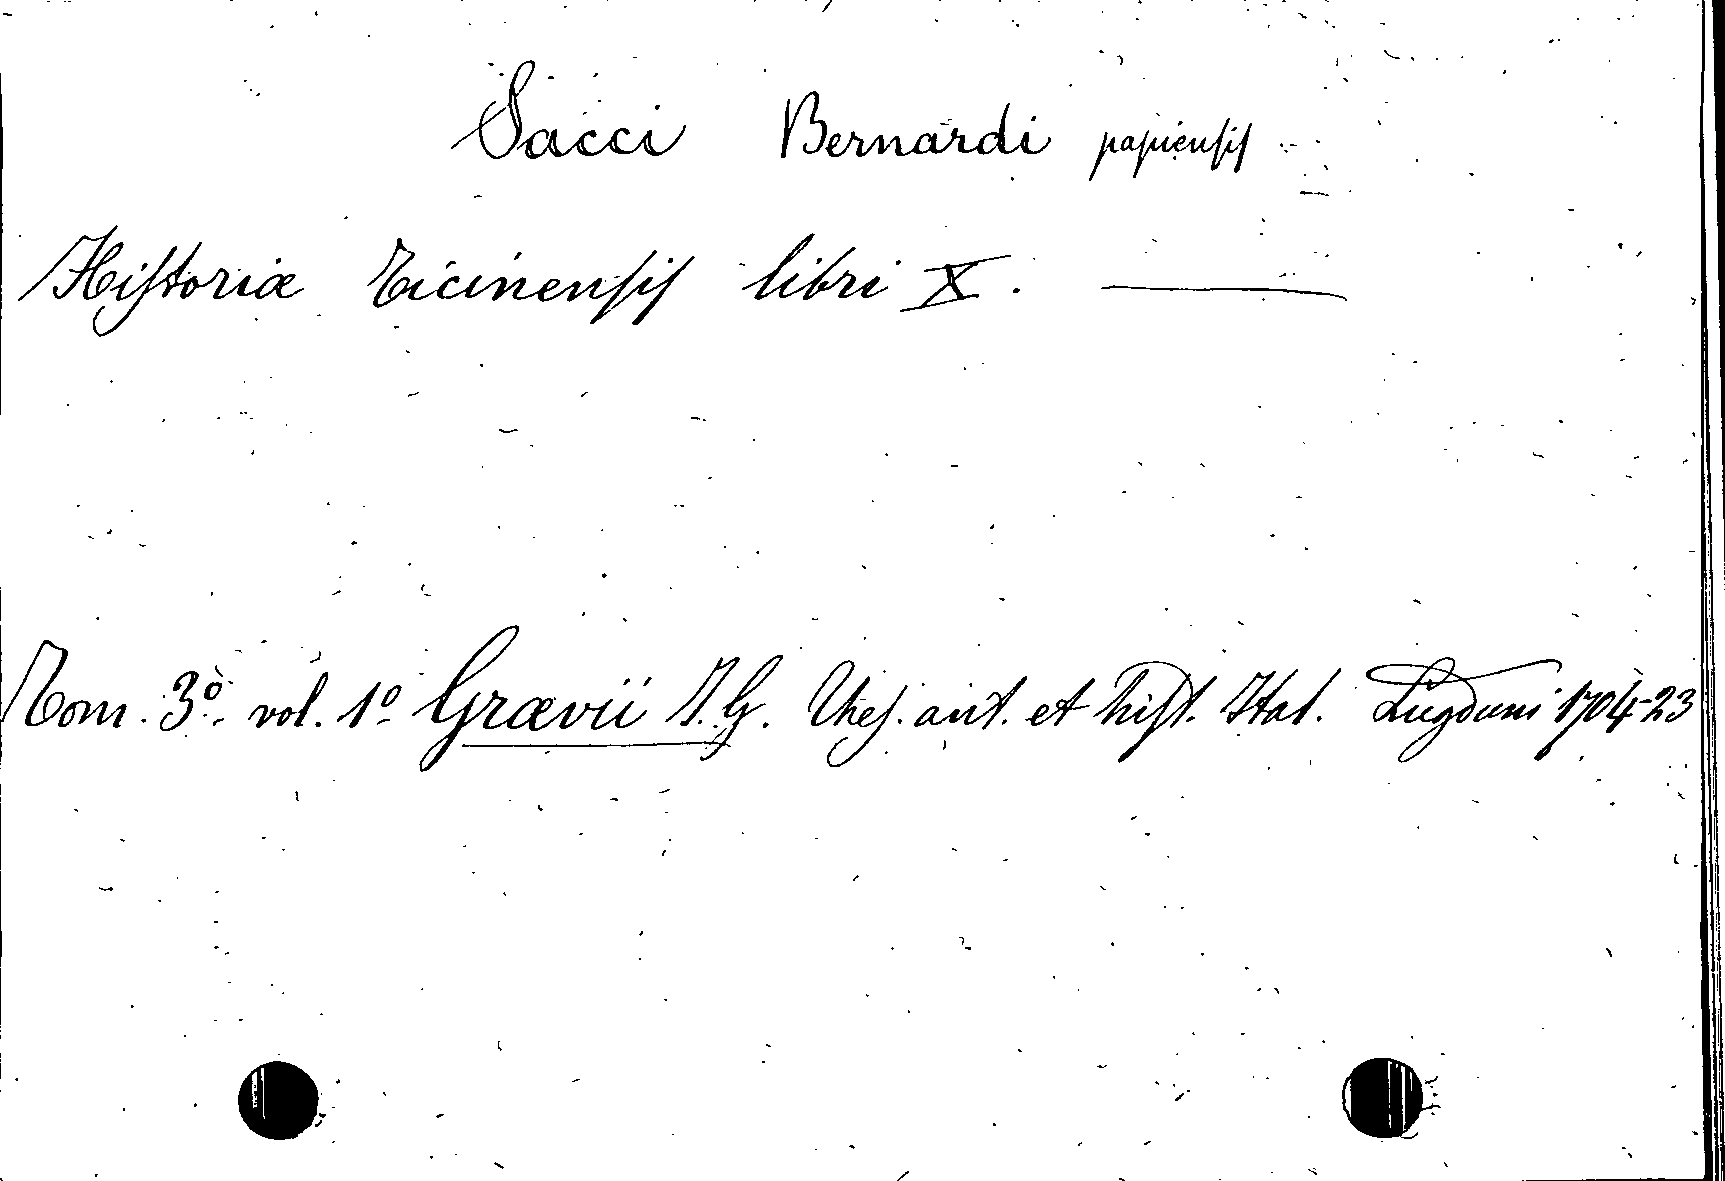 Sacci Bernardi papiensis
Historiæ Ticinensis libri X.
Tom. 3º vol. 1º Grævii I. G. Thes. ant. et hist. Ital. Lugduni 1704-23